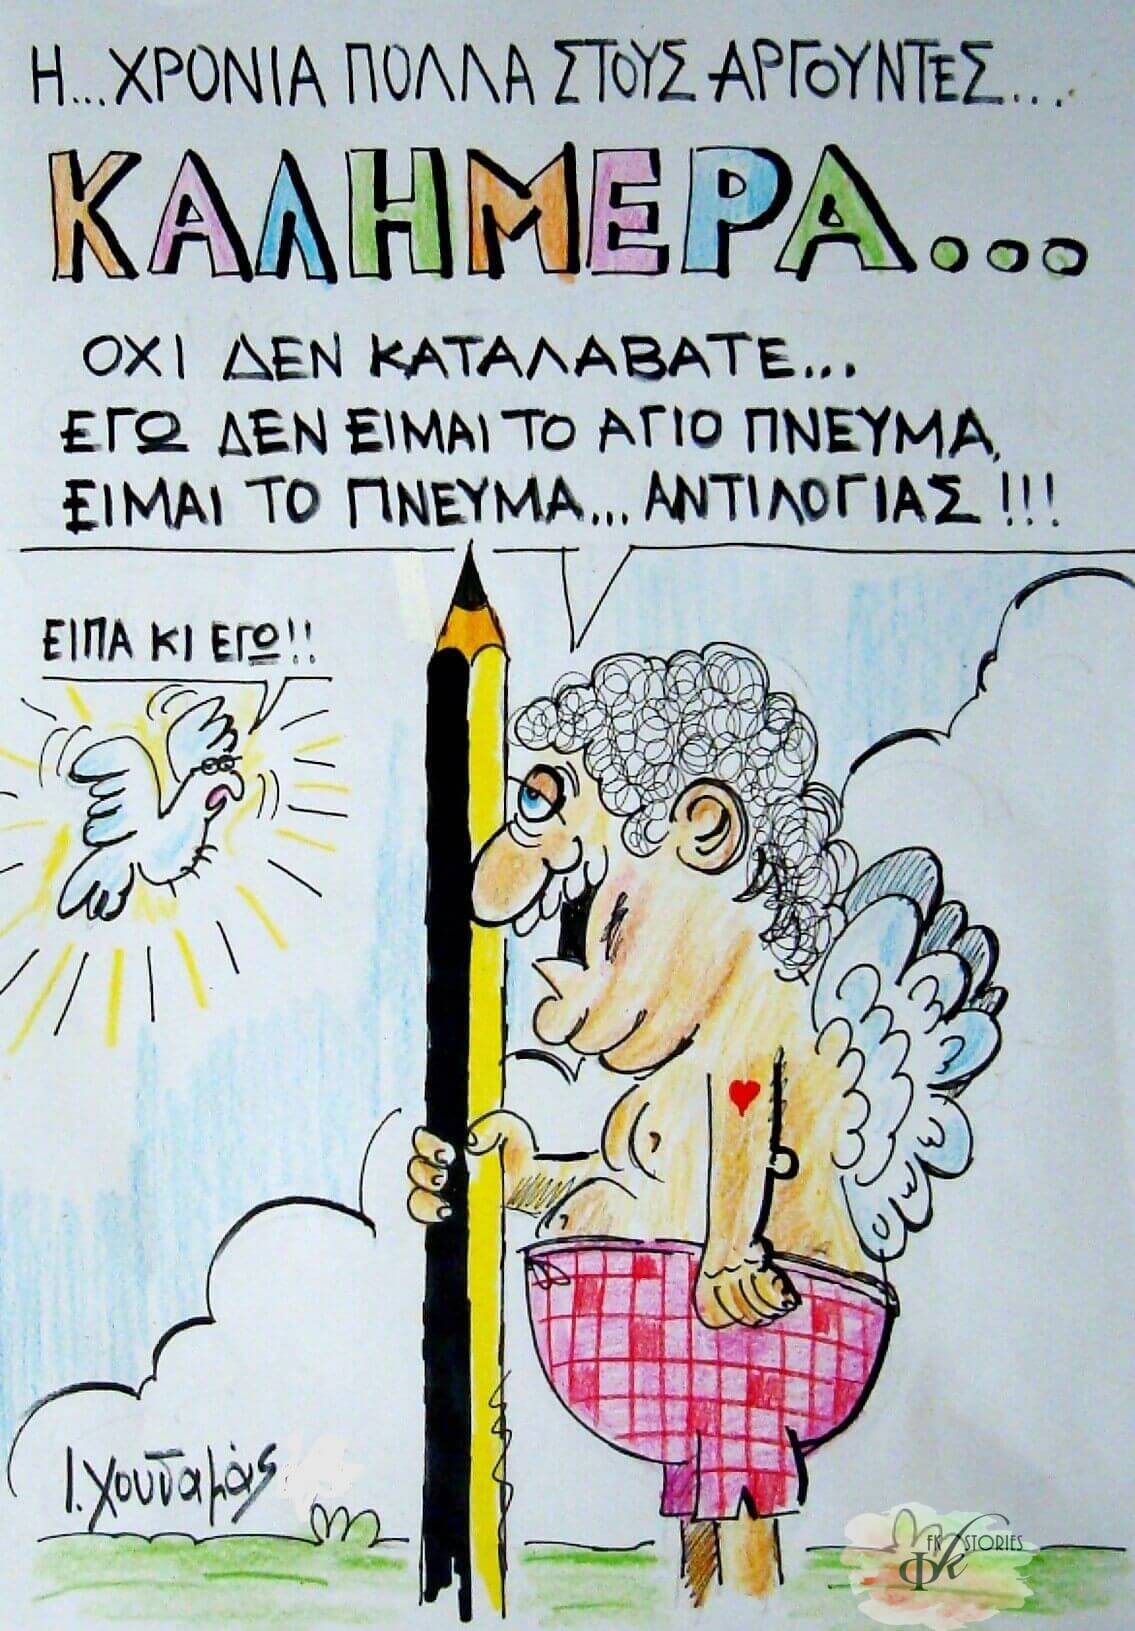 Η...ΧΡΟΝΙΑ ΠΟΛΛΑ ΣΤΟΥΣ ΑΡΓΟΥΝΤΕΣ...
ΚΑΛΗΜΕΡΑ...
ΟΧΙ ΔΕΝ ΚΑΤΑΛΑΒΑΤΕ...
ΕΓΩ ΔΕΝ ΕΙΜΑΙ ΤΟ ΑΓΙΟ ΠΝΕΥΜΑ,
ΕΙΜΑΙ ΤΟ ΠΝΕΥΜΑ... ΑΝΤΙΛΟΓΙΑΣ!!!
ΕΙΠΑ ΚΙ ΕΓΩ!!
Ι. Χουταμάς
FK STORIES